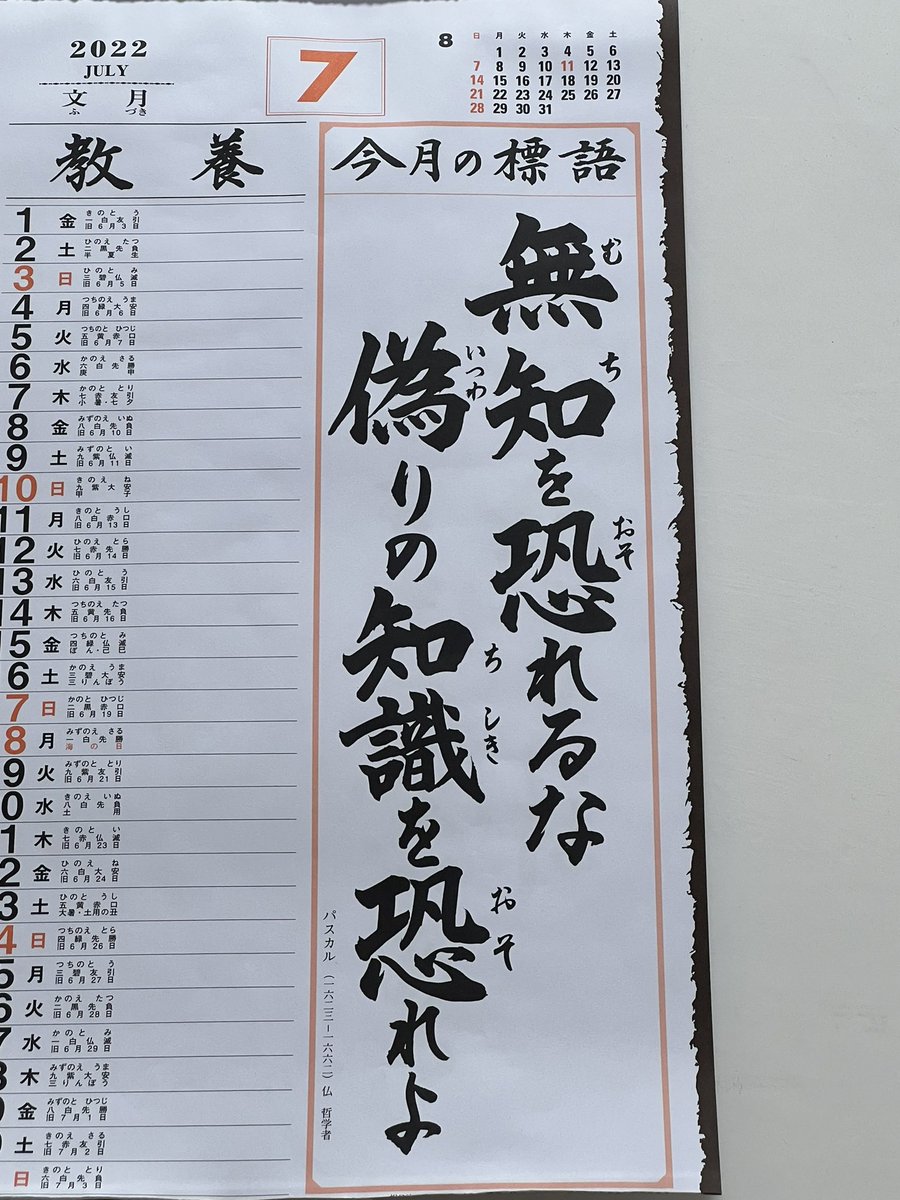 2022
JULY
文月
ふづき
7
8
日 月 火 水 木 金 土
1 2 3 4 5 6
7 8 9 10 11 12 13
14 15 16 17 18 19 20
21 22 23 24 25 26 27
28 29 30 31
教養
1 金 きのと う
一白友引
旧6月3日
2 土 ひのえ たつ
二黒先負
半夏生
3 日 ひのと み
三碧仏滅
旧6月5日
4 月 つちのえ うま
四緑大安
旧6月6日
5 火 つちのと ひつじ
五黄赤口
旧6月7日
6 水 かのえ さる
六白先勝
庚申
7 木 かのと とり
七赤友引
小暑・七夕
8 金 みずのえ いぬ
八白先負
旧6月10日
9 土 みずのと い
九紫仏滅
旧6月11日
10 日 きのえ ね
九紫大安
甲子
11 月 きのと うし
八白赤口
旧6月13日
12 火 ひのえ とら
七赤先勝
旧6月14日
13 水 ひのと う
六白友引
旧6月15日
14 木 つちのえ たつ
五黄先負
旧6月16日
15 金 つちのと み
四緑仏滅
ぼん・己巳
6 土 かのえ うま
三碧大安
三りんぼう
7 日 かのと ひつじ
二黒赤口
旧6月19日
8 月 みずのえ さる
一白先勝
海の日
9 火 みずのと とり
九紫友引
旧6月21日
0 水 きのえ いぬ
八白先負
土用
1 木 きのと い
七赤仏滅
旧6月23日
2 金 ひのえ ね
六白大安
旧6月24日
3 土 ひのと うし
五黄赤口
大暑・土用の丑
4 日 つちのえ とら
四緑先勝
旧6月26日
5 月 つちのと う
三碧友引
旧6月27日
6 火 かのえ たつ
二黒先負
旧6月28日
7 水 かのと み
一白仏滅
旧6月29日
木 みずのえ うま
九紫大安
三りんぼう
金 みずのと ひつじ
八白先勝
旧7月1日
土 きのえ さる
七赤友引
旧7月2日
日 きのと とり
六白先負
旧7月3日
今月の標語
無知を恐れるな
む ち おそ
偽りの知識を恐れよ
いつわ ち しき おそ
パスカル(一六二三ー一六六二)仏 哲学者